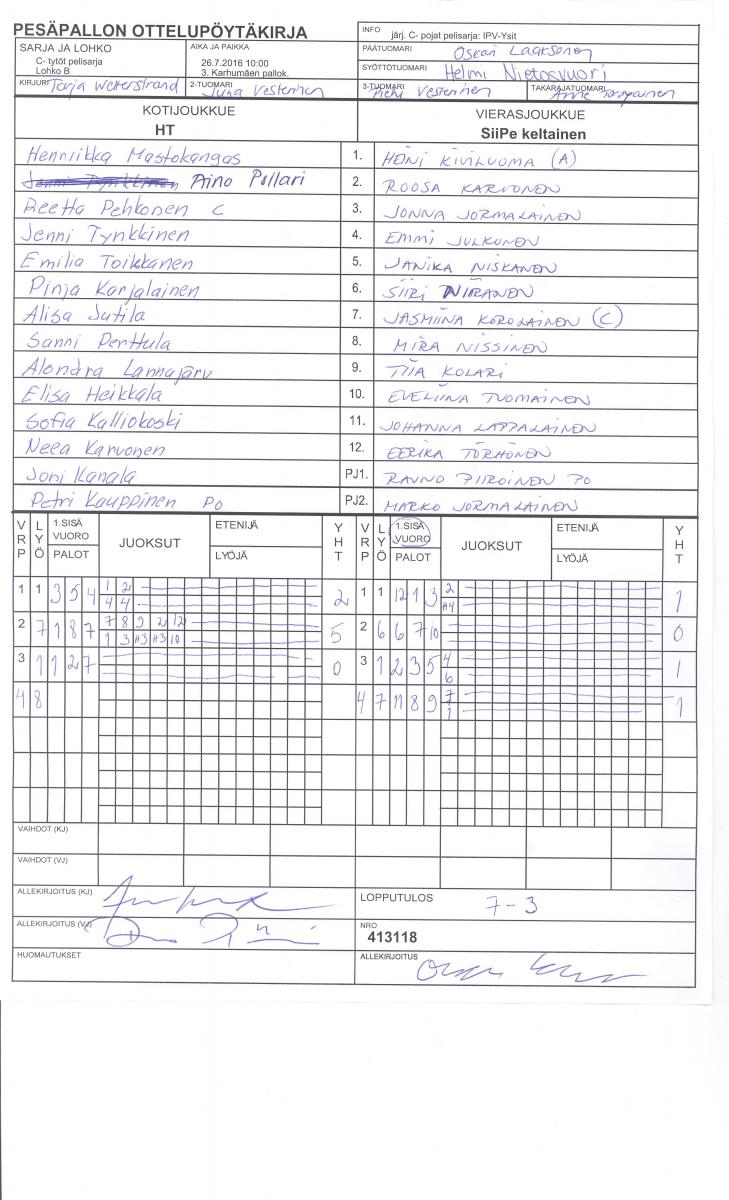 PESÄPALLON OTTELUPÖYTÄKIRJA
INFO järj. C- pojat pelisarja: IPV-Ysit
SARJA JA LOHKO
C- tytöt pelisarja
Lohko B
AIKA JA PAIKKA
26.7.2016 10:00
3. Karhumäen pallok.
PÄÄTUOMARI Oskari Laaksonen
SYÖTTÖTUOMARI Helmi Nietosvuori
KIRJURI Tarja Wetterstrand
2-TUOMARI Juha Vesterinen
3-TUOMARI Vesterinen
TAKARAJATUOMARI
KOTIJOUKKUE
HT
VIERASJOUKKUE
SiiPe keltainen
Henriikka Mastokangas 1. HEINI KIVILUOMA (A)
Aino Pollari 2. ROOSA KARVONEN
Reetta Pehkonen C 3. JONNA JORMALAINEN
Jenni Tynkkinen 4. EMMI JULKUNEN
Emilia Toikkanen 5. JANIKA NISKANEN
Pinja Karjalainen 6. SIIRI NIIRANEN
Alisa Jutila 7. JASMIINA KOROLAINEN (C)
Sanni Perttula 8. MIRA NISSINEN
Alondra Lannajärv 9. TIIA KOLARI
Elisa Heikkala 10. EVELIINA TUOMAINEN
Sofia Kalliokoski 11. JOHANNA LAPPALAINEN
Neea Karvonen 12. EERIKA TÖRHÖNEN
Joni Kanala PJ1. RAUNO PIIROINEN PO
Petri Kauppinen PO PJ2. MARKO JORMALAINEN
VRP LYÖ 1.SISÄ VUORO PALOT JUOKSUT ETENIJÄ LYÖJÄ YHT VRP LYÖ 1.SISÄ VUORO PALOT JUOKSUT ETENIJÄ LYÖJÄ YHT
1 1 3 5 4 1 2 2 1 1 12 1 3 2 1
4 4 #4
2 7 1 8 7 7 8 9 2 12 5 2 6 6 7 10 0
1 3 #3 #3 10
3 1 1 2 7 0 3 1 2 3 5 4 1
6
4 8 4 7 11 8 9 7 1
1
VAIHDOT (KJ)
VAIHDOT (VJ)
ALLEKIRJOITUS (KJ)
LOPPUTULOS 7-3
ALLEKIRJOITUS (VJ)
NRO
413118
HUOMAUTUKSET
ALLEKIRJOITUS